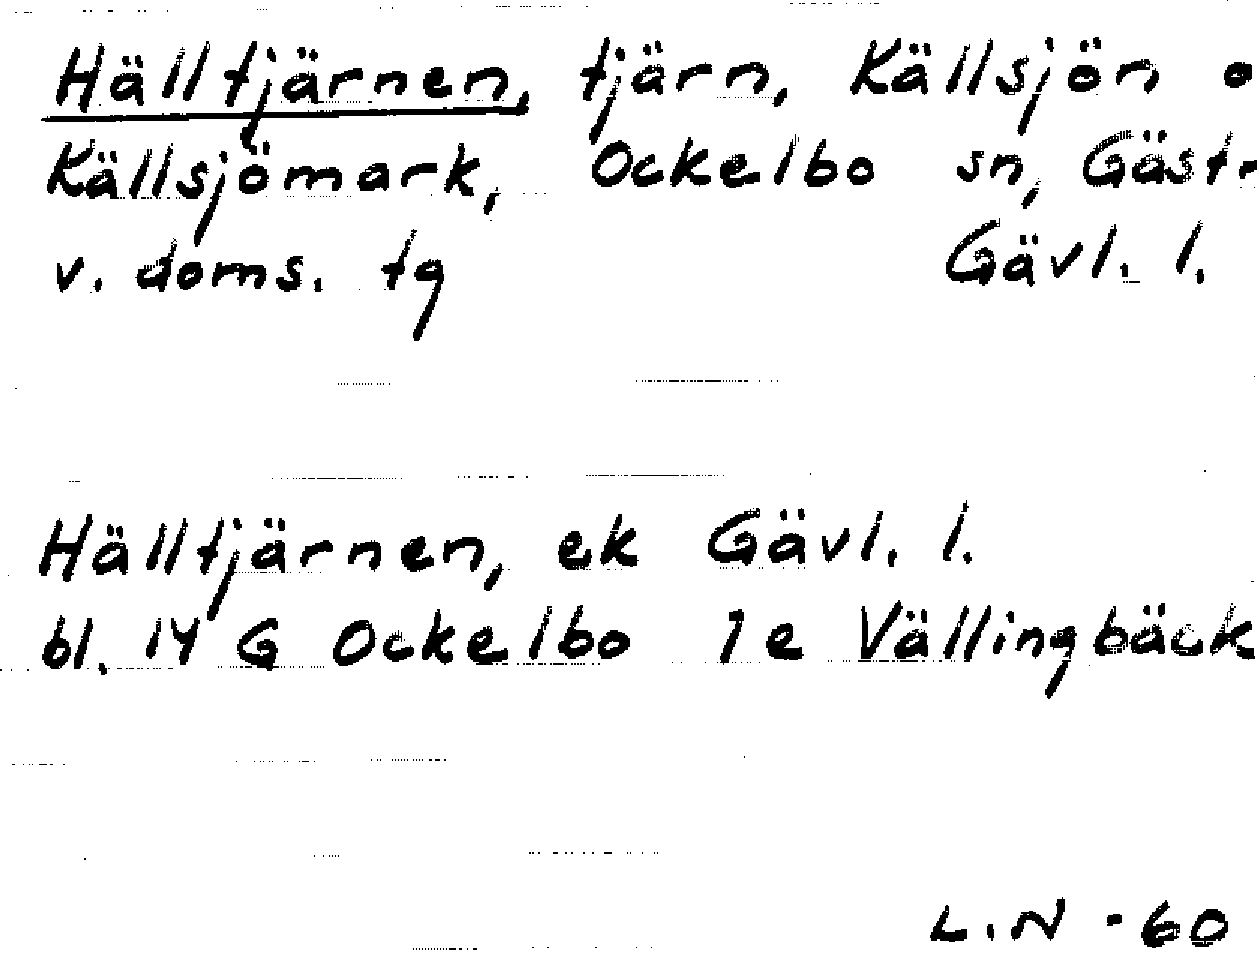 Hälltjärnen, tjärn, Källsjön o
Källsjömark, Ockelbo sn, Gästr
v. doms. tg Gävl. l.
Hälltjärnen, ek Gävl. l.
bl. 14 G Ockelbo 1e Vällingbäck
L.N -60